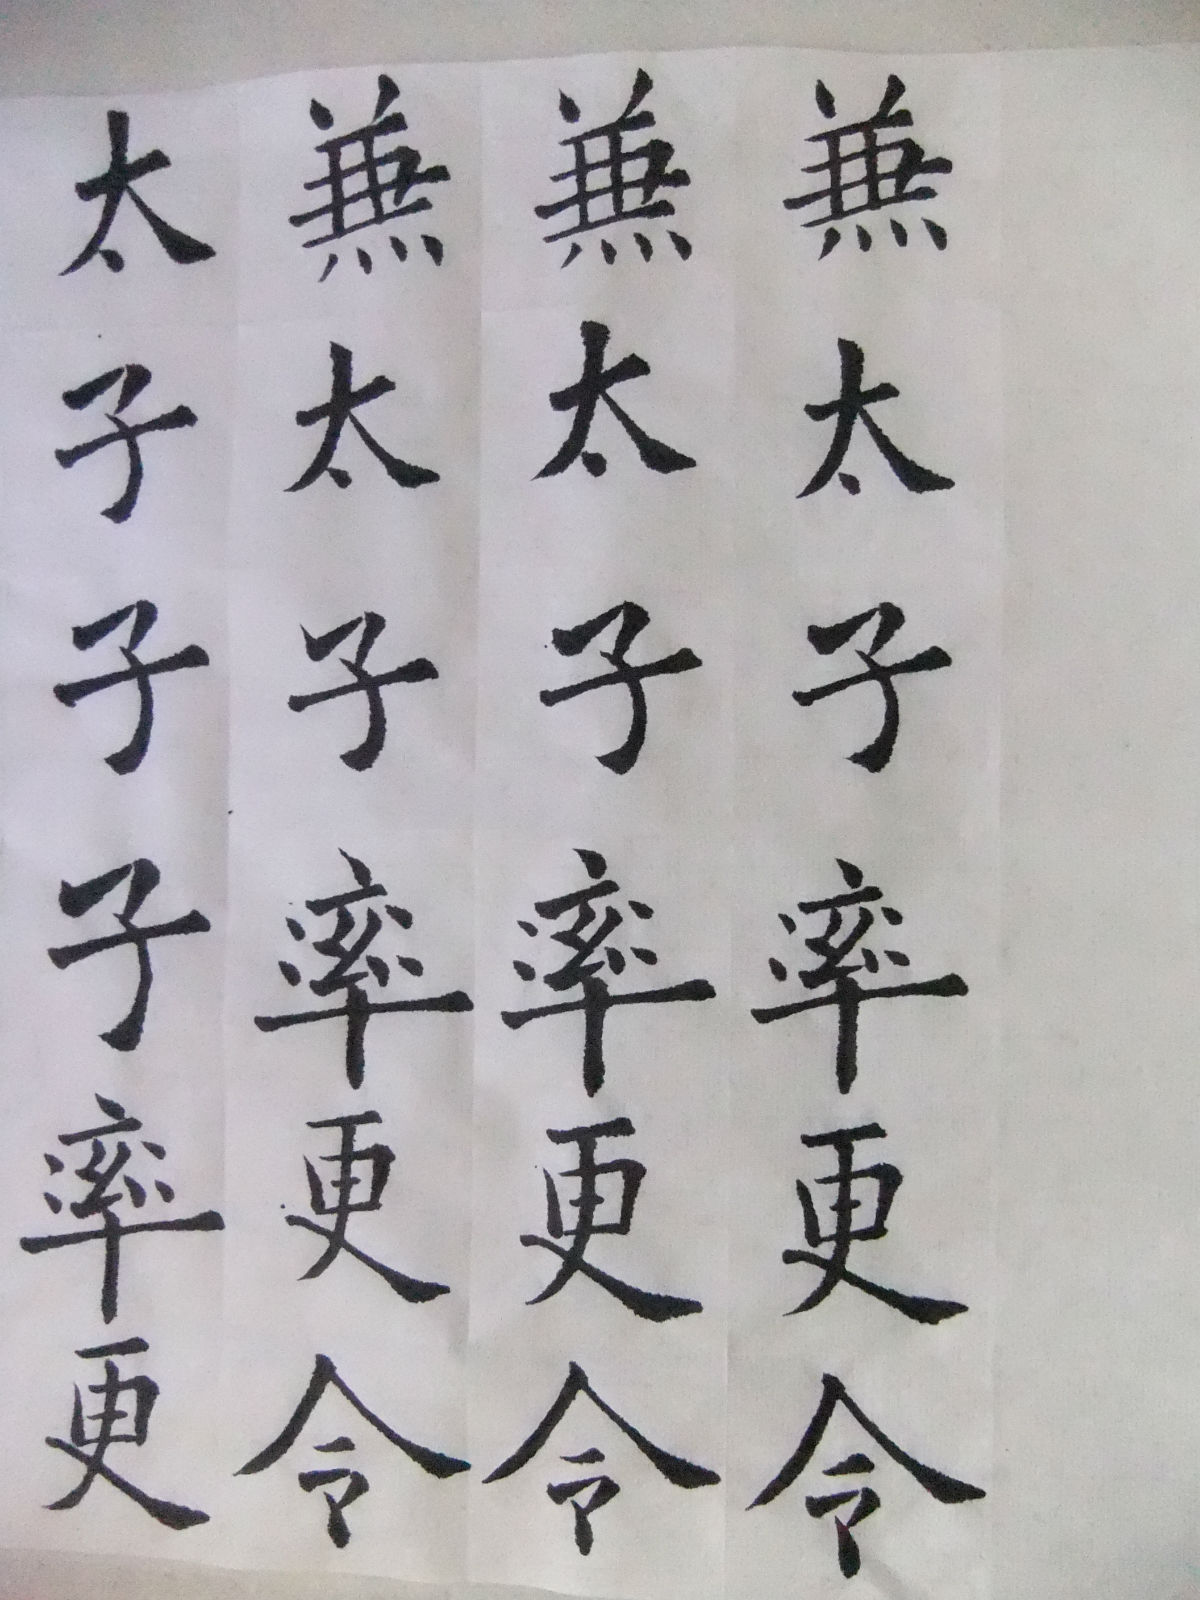 兼太子率更令
兼太子率更令
兼太子率更令
太子子子率更